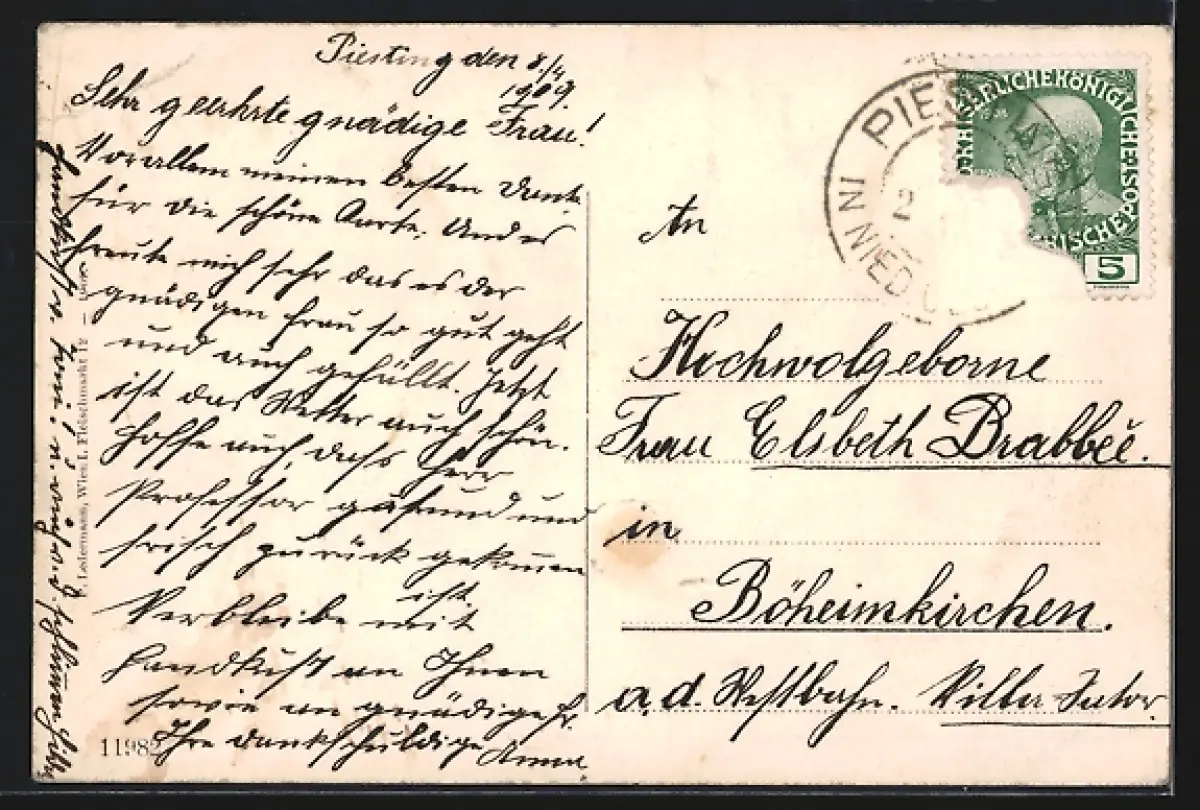 Piesting den 8/4
1909.
Sehr geehrte gnädige Frau!
Vor allem meinen besten Dank
für die schöne Karte. Und es
freute mich sehr das es der
gnädigen Frau so gut geht
und auch gefällt. Jetzt
ist das Wetter auch schön.
Hoffe auch, dass Herr
Professor gesund und
frisch zurück gekomen
ist.
Verbleibe mit
Handkuß an Ihnen
sowie an gnädige Fr.
Ihre dankschuldige Anna
Handkuß
11982
Ledermann, Wien I. Fleischmarkt 12
PIES
IN NIED
KAISERLICHE KÖNIGLICHE ÖSTERREICHISCHE
5
An
Hochwolgeborne
Frau Elsbeth Brabbée.
in
Böheimkirchen.
a. d. Westbahn. Villa